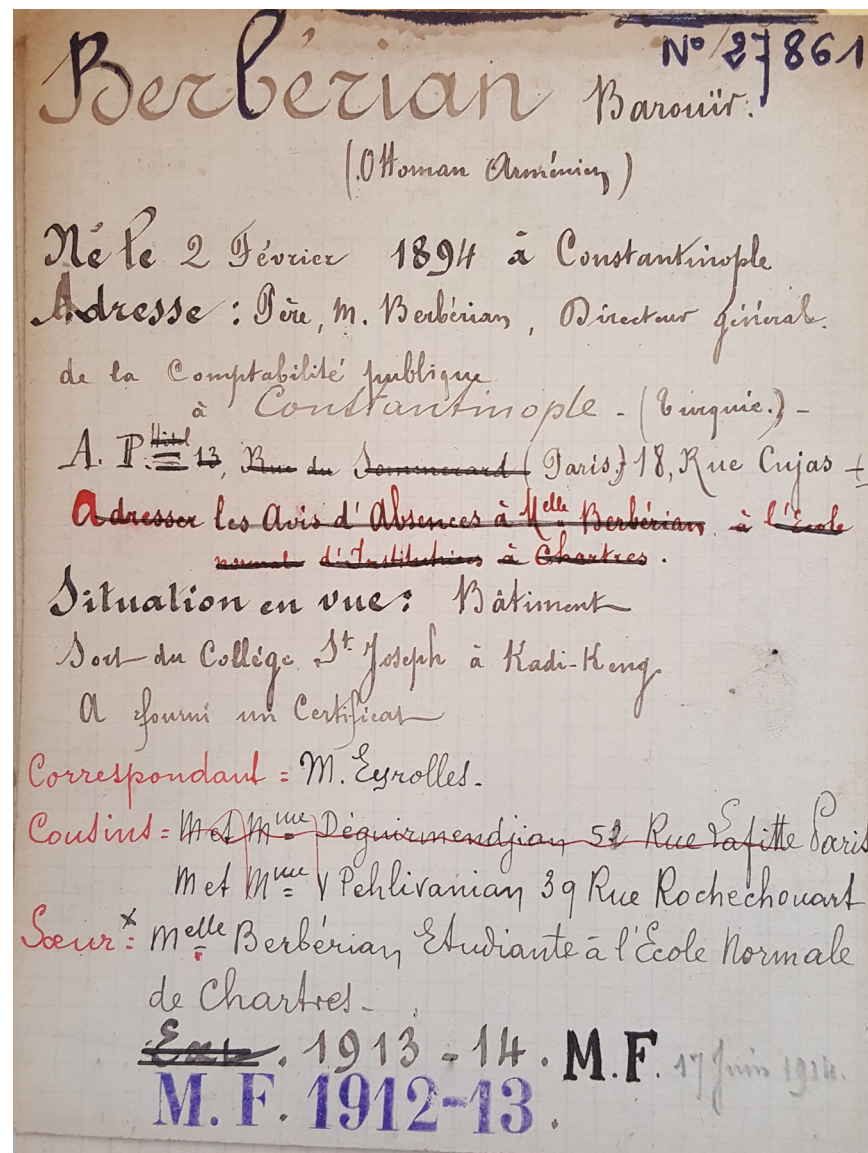 N° 27861
Berbérian Barouïr.
(Ottoman Arménien)
Né le 2 Février 1894 à Constantinople
Adresse : Père, M. Berbérian, Directeur général
de la Comptabilité publique
à Constantinople - (Turquie.) -
A. P. Hôtel 13, Rue du Sommerard (Paris) 18, Rue Cujas +
Adresser les Avis d'Absences à Melle Berbérian, à l'École
normale d'Institutrices à Chartres.
Situation en vue : Bâtiment
Sort du Collège St Joseph à Kadi-Keng
A fourni un Certificat
Correspondant = M. Eyrolles.
Cousins = M et Mme Déguirmendjian 52 Rue Lafitte Paris
M et Mme V Pehlivanian 39 Rue Rochechouart
Sœur x = Melle Berbérian Etudiante à l'École Normale
de Chartres -
Ext. 1913-14. M.F. 17 Juin 1914.
M. F. 1912-13.